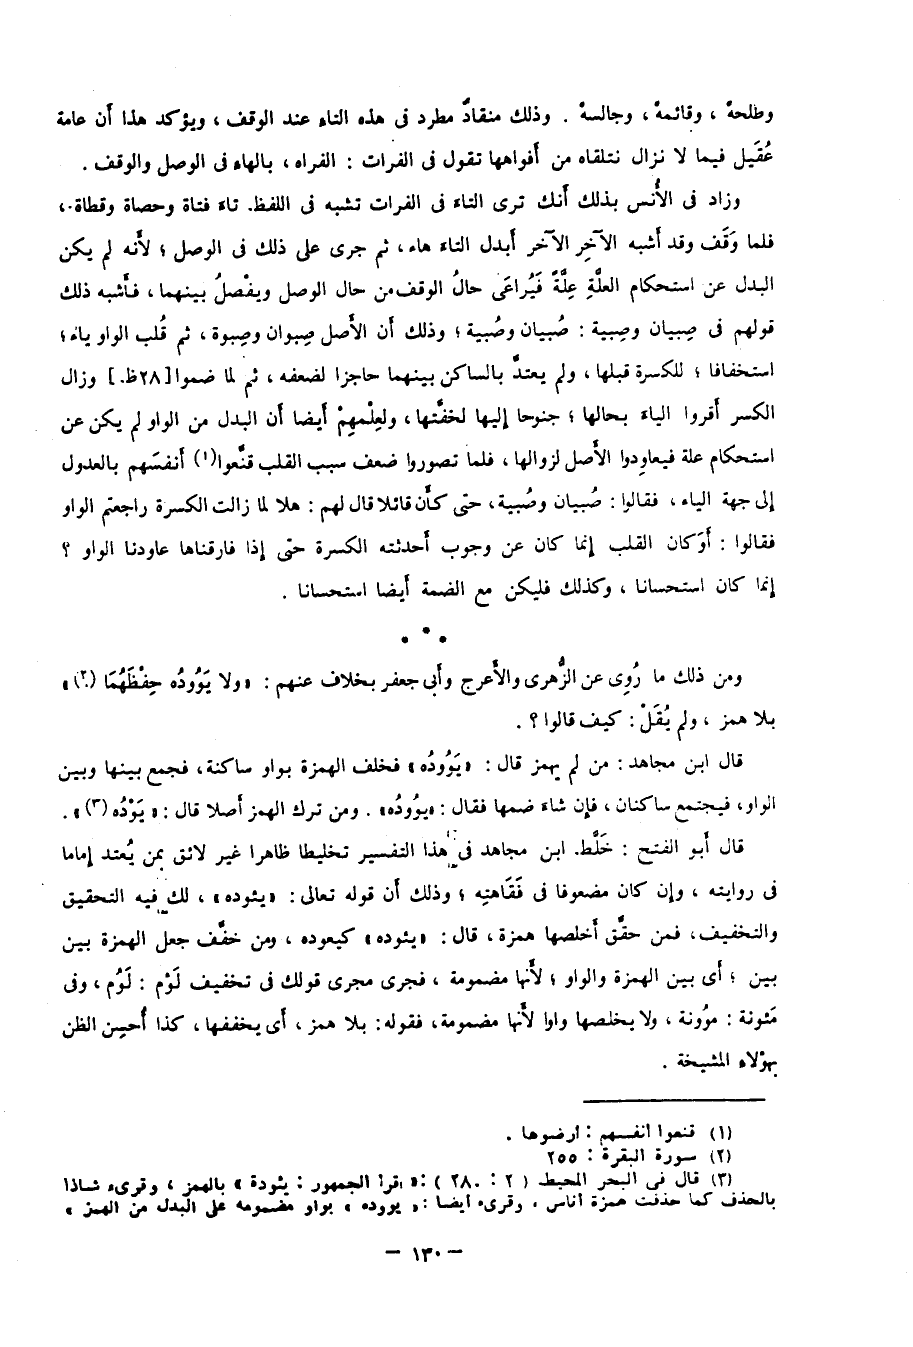 وطلحهْ ، وقائمهْ ، وجالسهْ . وذلك منقادٌ مطرد فى هذه التاء عند الوقف ، ويؤكد هذا أن عامة
عُقَيل فيما لا نزال نتلقاه من أفواهها تقول فى الفرات : الفراه ، بالهاء فى الوصل والوقف .
وزاد فى الأُنس بذلك أنك ترى التاء فى الفرات تشبه فى اللفظ تاء فتاة وحصاة وقطاة ،
فلما وَقَف وقد أشبه الآخِر الآخر أبدل التاء هاء ، ثم جرى على ذلك فى الوصل ؛ لأنه لم يكن
البدل عن استحكام العلَّةِ عِلَّةً فَيُراعَى حالُ الوقف من حال الوصل ويفْصلُ بينهما ، فأشبه ذلك
قولهم فى صِبيان وصِبية : صُبيان وصُبية ؛ وذلك أن الأصل صِبوان وصِبوة ، ثم قُلب الواو ياء ؛
استخفافا ؛ للكسرة قبلها ، ولم يعتدَّ بالساكن بينهما حاجزا لضعفه ، ثم لما ضموا [٢٨ظ] وزال
الكسر أقروا الياء بحالها ؛ جنوحا إليها لخفَّتها ، ولعِلْمهِمْ أيضا أن البدل من الواو لم يكن عن
استحكام علة فيعاودوا الأصل لزوالها ، فلما تصوروا ضعف سبب القلب قنَّعوا(١) أنفسَهم بالعدول
إلى جهة الياء ، فقالوا : صُبيان وصُبية ، حتى كأن قائلا قال لهم : هلا لما زالت الكسرة راجعتم الواو
فقالوا : أوَكان القلب إنما كان عن وجوب أحدثته الكسرة حتى إذا فارقناها عاودنا الواو ؟
إنما كان استحسانا ، وكذلك فليكن مع الضمة أيضا استحسانا .
• • •
ومن ذلك ما رُوِى عن الزُّهرى والأعرج وأبى جعفر بخلاف عنهم : «ولا يَوُوده حِفْظَهُمَا (٢)»
بلا همز ، ولم يُقَلْ : كيف قالوا ؟ .
قال ابن مجاهد : من لم يهمز قال : «يَوْوُدُه» فخلف الهمزة بواو ساكنة ، فجمع بينها وبين
الواو ، فيجتمع ساكنان ، فإن شاء ضمها فقال : «يوُوده» . ومن ترك الهمز أصلا قال : «يَوْدُه (٣)» .
قال أبو الفتح : خَلَّط ابن مجاهد فى هذا التفسير تخليطا ظاهرا غير لائق بمن يُعتد إماما
فى روايته ، وإن كان مضعوفا فى فَقَاهتِه ؛ وذلك أن قوله تعالى : «يئوده» ، لك فيه التحقيق
والتخفيف ، فمن حقَّق أخلصها همزة ، قال : «يئوده» كيعوده ، ومن خفَّف جعل الهمزة بين
بين ؛ أى بين الهمزة والواو ؛ لأنها مضمومة ، فجرى مجرى قولك فى تخفيف لَؤُم : لَوُم ، وفى
مَئونة : موُونة ، ولا يخلصها واوا لأنها مضمومة ، فقوله : بلا همز ، أى يخففها ، كذا أُحسِن الظن
بهؤلاء المشيخة .
(١) قنعوا أنفسهم : أرضوها .
(٢) سورة البقرة : ٢٥٥
(٣) قال فى البحر المحيط ( ٢ : ٢٨٠ ) : « قرأ الجمهور : يئودة » بالهمز ، وقرىء شاذا
بالحذف كما حذفت همزة أناس ، وقرىء أيضا : « يووده » بواو مضمومه على البدل من الهمز »
– ١٣٠ –